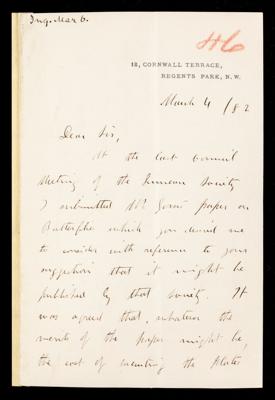 Ing. Mar 6.
46
12, CORNWALL TERRACE,
REGENTS PARK, N.W.
March 4 /82
Dear Sir,
At the last Council
Meeting of the Linnean Society
I submitted Mr paper on
Butterflies which you desired me
to consider with reference to your
suggestion that it might be
published by that Society. It
was agreed that, whatever the
merits of the paper might be,
the cost of executing the plates